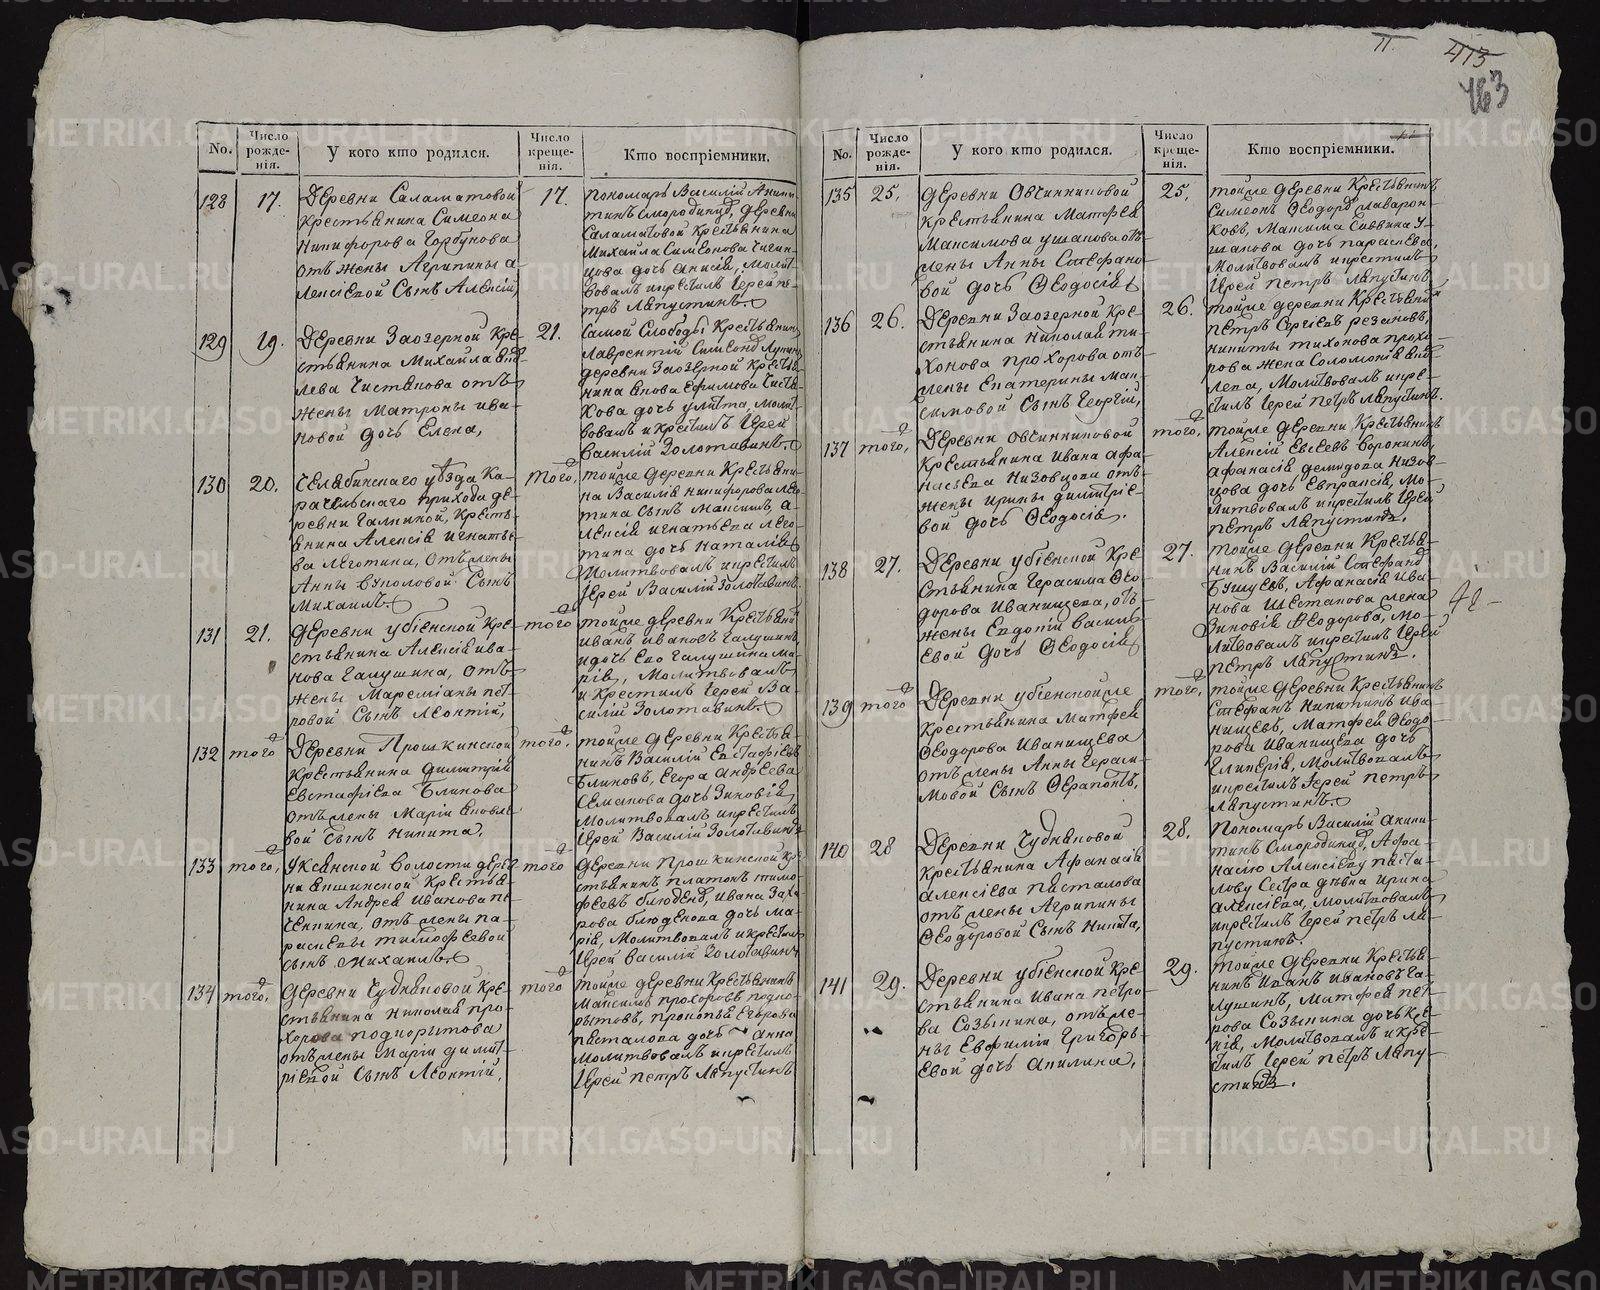 П.
413
463
No.
Число рожде-нія.
У кого кто родился.
Число креще-нія.
Кто воспріемники.
128
17.
Деревни Саламатовой
крестьянина Симеона
Никифорова Горбунова
отъ жены Агрипины а-
лексіевой сынъ Алексій
17.
пономарь Василій Аники-
тинъ Смородинцъ, деревни
Саламатовой крестьянина
Михайла Симеонова Чигин-
цова дочь Анисія, молит-
вовалъ икрестилъ Іерей пе-
тръ Ляпустинъ.
129
19.
Деревни Заозерной кре-
стьянина Михайла
лева Чистякова отъ
жены Матроны ива-
новой дочь Елена,
21.
Самой Слободы крестьянинъ
Лаврентій Симеоновъ
деревни Заозерной крестья-
нина Якова Ефимова Чистя-
кова дочь улита, молит-
вовалъ икрестилъ Іерей
Василій Золотавинъ.
130
20.
Челябинскаго уѣзда Ка-
рачельскаго прихода де-
ревни Галкиной, кресть-
янина Алексія игнатье-
ва Леготина, отъ жены
Анны Сынъ
Михаилъ.
того,
тойже деревни крестьяни-
на Василія никифорова лего-
тина сынъ Максимъ, а-
лексія игнатьева лего-
тина дочь наталія
Молитвовалъ икрестилъ
Іерей Василій Золотавинъ.
131
21.
Деревни убіенской кре-
стьянина Алексія ива-
нова Галушина, отъ
жены Мареміаны пет-
ровой Сынъ Леонтій,
того
тойже деревни крестьянинъ
иванъ ивановъ Галушинъ,
идочь его Галушина ма-
рія, Молитвовалъ
и крестилъ Іерей Ва-
силій Золотавинъ.
132
того
Деревни Прошкинской
крестьянина Димитрія
Евстафіева Блинова
отъ жены Маріи Яковле-
вой Сынъ Никита,
того,
тойже деревни крестья-
нинъ Василій Евстафіевъ
Блиновъ, Егора Андреева
Семакова дочь Зиновія,
Молитвовалъ икрестилъ
Іерей Василій Золотавинъ
133
того,
Уксянской волости дерев-
ни Якшинской Крестья-
нина Андрея Иванова пе-
ченкина, отъ жены па-
раскевы тимофеевой
сынъ Михаилъ.
того
Деревни Прошкинской кре-
стьянинъ платонъ тимо-
феевъ блюденовъ, ивана Заха-
рова блюденова дочь ма-
рія, Молитвовалъ икрестилъ
Іерей Василій Золотавинъ
134
того,
Деревни Чудняковой Кре-
стьянина Николая про-
хорова подкорытова
отъ жены Маріи димит-
ріевой Сынъ Леонтій,
того
тойже деревни крестьянинъ
Максимъ прохоровъ подко-
рытовъ, прокопія Егорова
пасталова дочь Анна
Молитвовалъ икрестилъ
Іерей Петръ Ляпустинъ
No.
Число рожде-нія.
У кого кто родился.
Число креще-нія.
Кто воспріемники.
135
25.
Деревни Овчинниковой
крестьянина Матфея
Максимова ушакова отъ
жены Анны Стефано-
вой дочь Ѳеодосія
25.
тойже деревни крестьянинъ
Симеонъ Ѳеодоровъ
ковъ, Максима Саввина У-
шакова дочь параскева,
Молитвовалъ икрестилъ
Іерей Петръ Ляпустинъ
136
26.
Деревни Заозерной кре-
стьянина Николая ти-
хонова прохорова отъ
жены Екатерины Мак-
симовой Сынъ Георгій,
26.
тойже деревни крестьянинъ
Петръ Сергіевъ резановъ,
никиты тихонова прохо-
рова жена Соломонія
лева, Молитвовалъ икре-
стилъ Іерей Петръ Ляпустинъ.
137
того,
Деревни Овчинниковой
Крестьянина Ивана афа-
насьева Низовцова отъ
жены ирины димитріе-
вой дочь Ѳеодосія.
того,
тойже деревни Крестьянинъ
Алексій Евсеевъ Воронинъ,
афанасія демидова Низов-
цова дочь Евпраксія, Мо-
литвовалъ икрестилъ Іерей
Петръ Ляпустинъ.
138
27.
Деревни убіенской Кре-
стьянина Герасима Ѳео-
дорова Иванищева, отъ
жены Евдотіи Василь-
евой дочь Ѳеодосія
27.
тойже деревни Крестья-
нинъ Василій Стефановъ
Бушуевъ, Афанасія Ива-
нова Шестакова жена
Зиновія Ѳеодорова, Мо-
литвовалъ икрестилъ Іерей
Петръ Ляпустинъ.
139
того
Деревни убіенской же
Крестьянина Матфея
Ѳеодорова Иванищева
отъ жены Анны Гераси-
мовой Сынъ Ѳерапонтъ,
того,
тойже деревни Крестьянинъ
Стефанъ Никитинъ Ива-
нищевъ, Матфея Ѳеодо-
рова Иванищева дочь
Гликерія, Молитвовалъ
икрестилъ Іерей Петръ
Ляпустинъ.
140
28
Деревни Чудняковой
Крестьянина Афанасія
Алексіева Пасталова
отъ жены Агрипины
Ѳеодоровой Сынъ Никита,
28.
Пономарь Василій Аники-
тинъ Смородинцъ, Афа-
насію Алексіеву паста-
лову Сестра дѣвка Ирина
алексіева, Молитвовалъ
икрестилъ Іерей Петръ Ля-
пустинъ.
141
29.
Деревни убіенской Кре-
стьянина Ивана Петро-
ва Созыкина, отъ же-
ны Евфиміи Григорь-
евой дочь Акилина,
29.
тойже деревни Крестья-
нинъ Иванъ Ивановъ Га-
лушинъ, Матфея пет-
рова Созыкина дочь Ксе-
нія, Молитвовалъ и кре-
стилъ Іерей Петръ Ляпу-
стинъ.